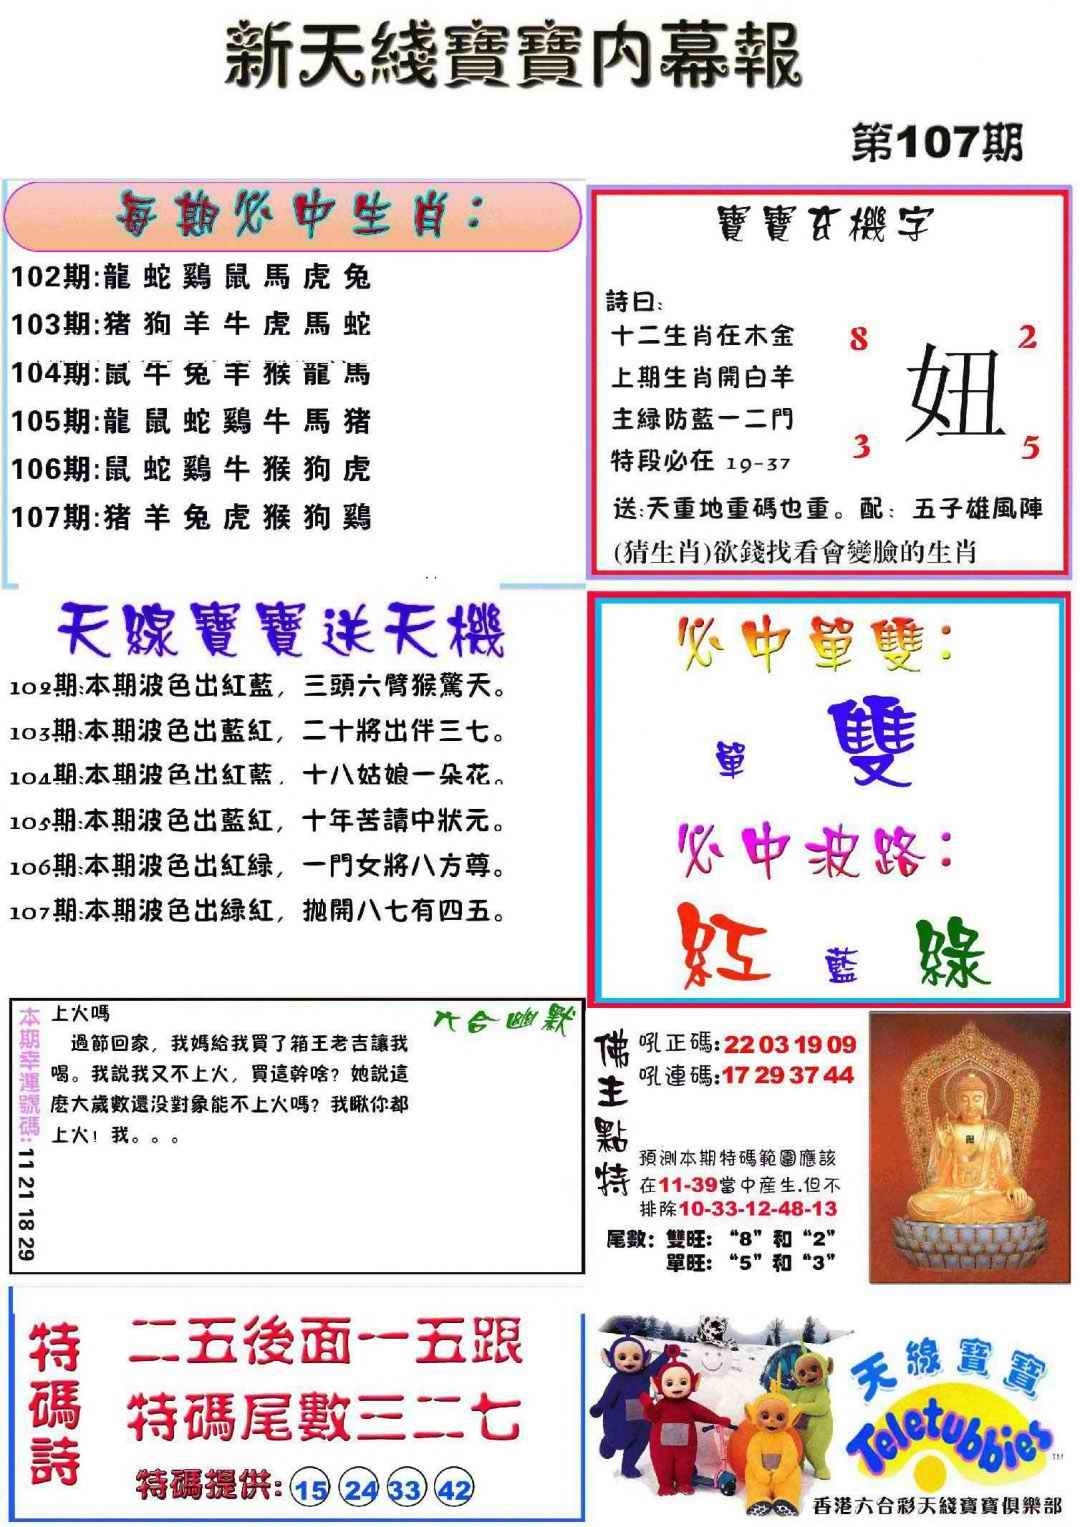 新天綫寶寶内幕報
第107期
每期必中生肖：
102期:龍 蛇 鷄 鼠 馬 虎 兔
103期:猪 狗 羊 牛 虎 馬 蛇
104期:鼠 牛 兔 羊 猴 龍 馬
105期:龍 鼠 蛇 鷄 牛 馬 猪
106期:鼠 蛇 鷄 牛 猴 狗 虎
107期:猪 羊 兔 虎 猴 狗 鷄
寶寶玄機字
詩曰：
十二生肖在木金
上期生肖開白羊
主緑防藍一二門
特段必在 19-37
8 2
妞
3 5
送:天重地重碼也重。配：五子雄風陣
(猜生肖)欲錢找看會變臉的生肖
天線寶寶送天機
102期:本期波色出紅藍，三頭六臂猴驚天。
103期:本期波色出藍紅，二十將出伴三七。
104期:本期波色出紅藍，十八姑娘一朵花。
105期:本期波色出藍紅，十年苦讀中狀元。
106期:本期波色出紅緑，一門女將八方尊。
107期:本期波色出緑紅，抛開八七有四五。
必中單雙：
單 雙
必中波路：
紅 藍 綠
本期幸運號碼:11 21 18 29
六合幽默
上火嗎
過節回家，我媽給我買了箱王老吉讓我
喝。我說我又不上火，買這幹啥？她說這
麽大歲數還没對象能不上火嗎？我瞅你都
上火！我。。。
佛主點特
吼正碼:22 03 19 09
吼連碼:17 29 37 44
預測本期特碼範圍應該
在11-39當中産生.但不
排除10-33-12-48-13
尾數：雙旺：“8”和“2”
單旺：“5”和“3”
特碼詩
二五後面一五跟
特碼尾數三二七
特碼提供: 15 24 33 42
天線寶寶
Teletubbies
TM
香港六合彩天綫寶寶俱樂部